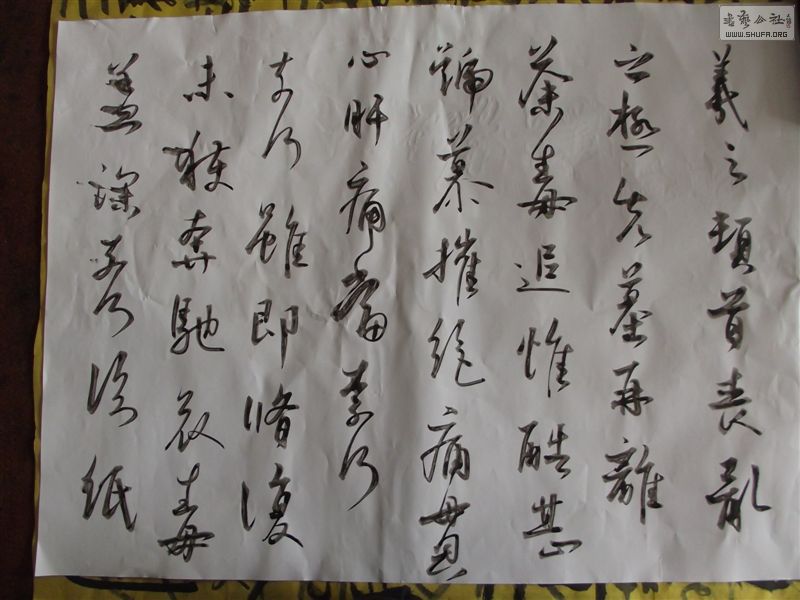 羲之頓首喪亂
之極先墓再離
荼毒追惟酷甚
號慕摧絶痛貫
心肝痛當奈何
奈何雖即脩復
未獲奔馳哀毒
益深奈何臨紙
書藝公社
WWW.SHUFA.ORG